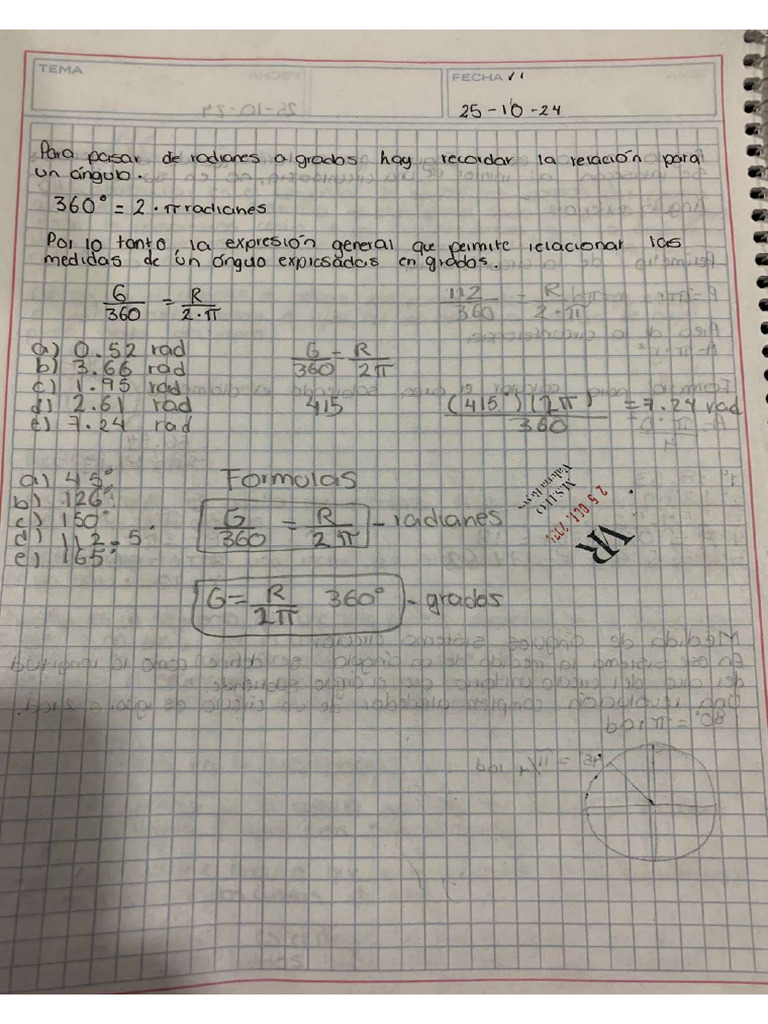 TEMA
FECHA
25-10-24
Para pasar de radianes a grados hay recordar la relación para
un ángulo.
360° = 2 · π radianes
Por lo tanto, la expresión general que permite relacionar las
medidas de un ángulo expresadas en grados.
G/360 = R/2·π
112/360 = R/2·π
a) 0.52 rad
b) 3.66 rad
c) 1.95 rad
d) 2.61 rad
e) 7.24 rad
G/360 = R/2π
415
(415°)(2π)/360 = 7.24 rad
a) 45°
b) 126°
c) 150°
d) 112.5
e) 165°
Formulas
G/360 = R/2π - radianes
G = R/2π 360° - grados
25 OCT. 2024
VR